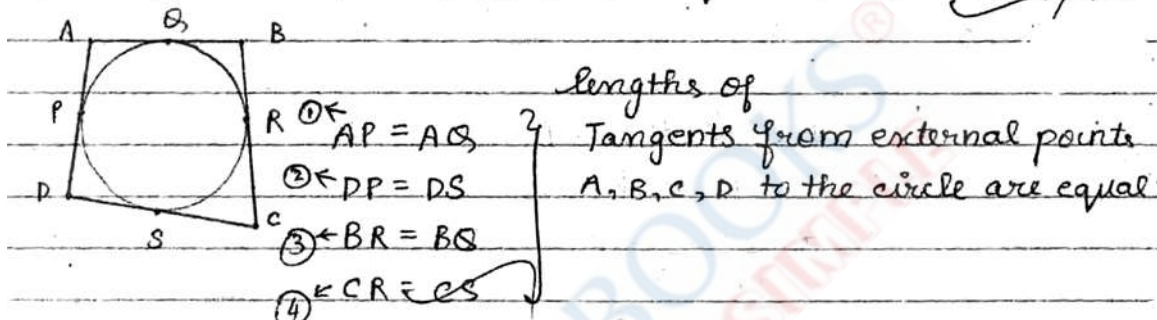 A Q B
P R
D S C
① ← AP = AQ
② ← DP = DS
③ ← BR = BQ
④ ← CR = CS
lengths of
Tangents from external points
A, B, C, D to the circle are equal
BOOKS®